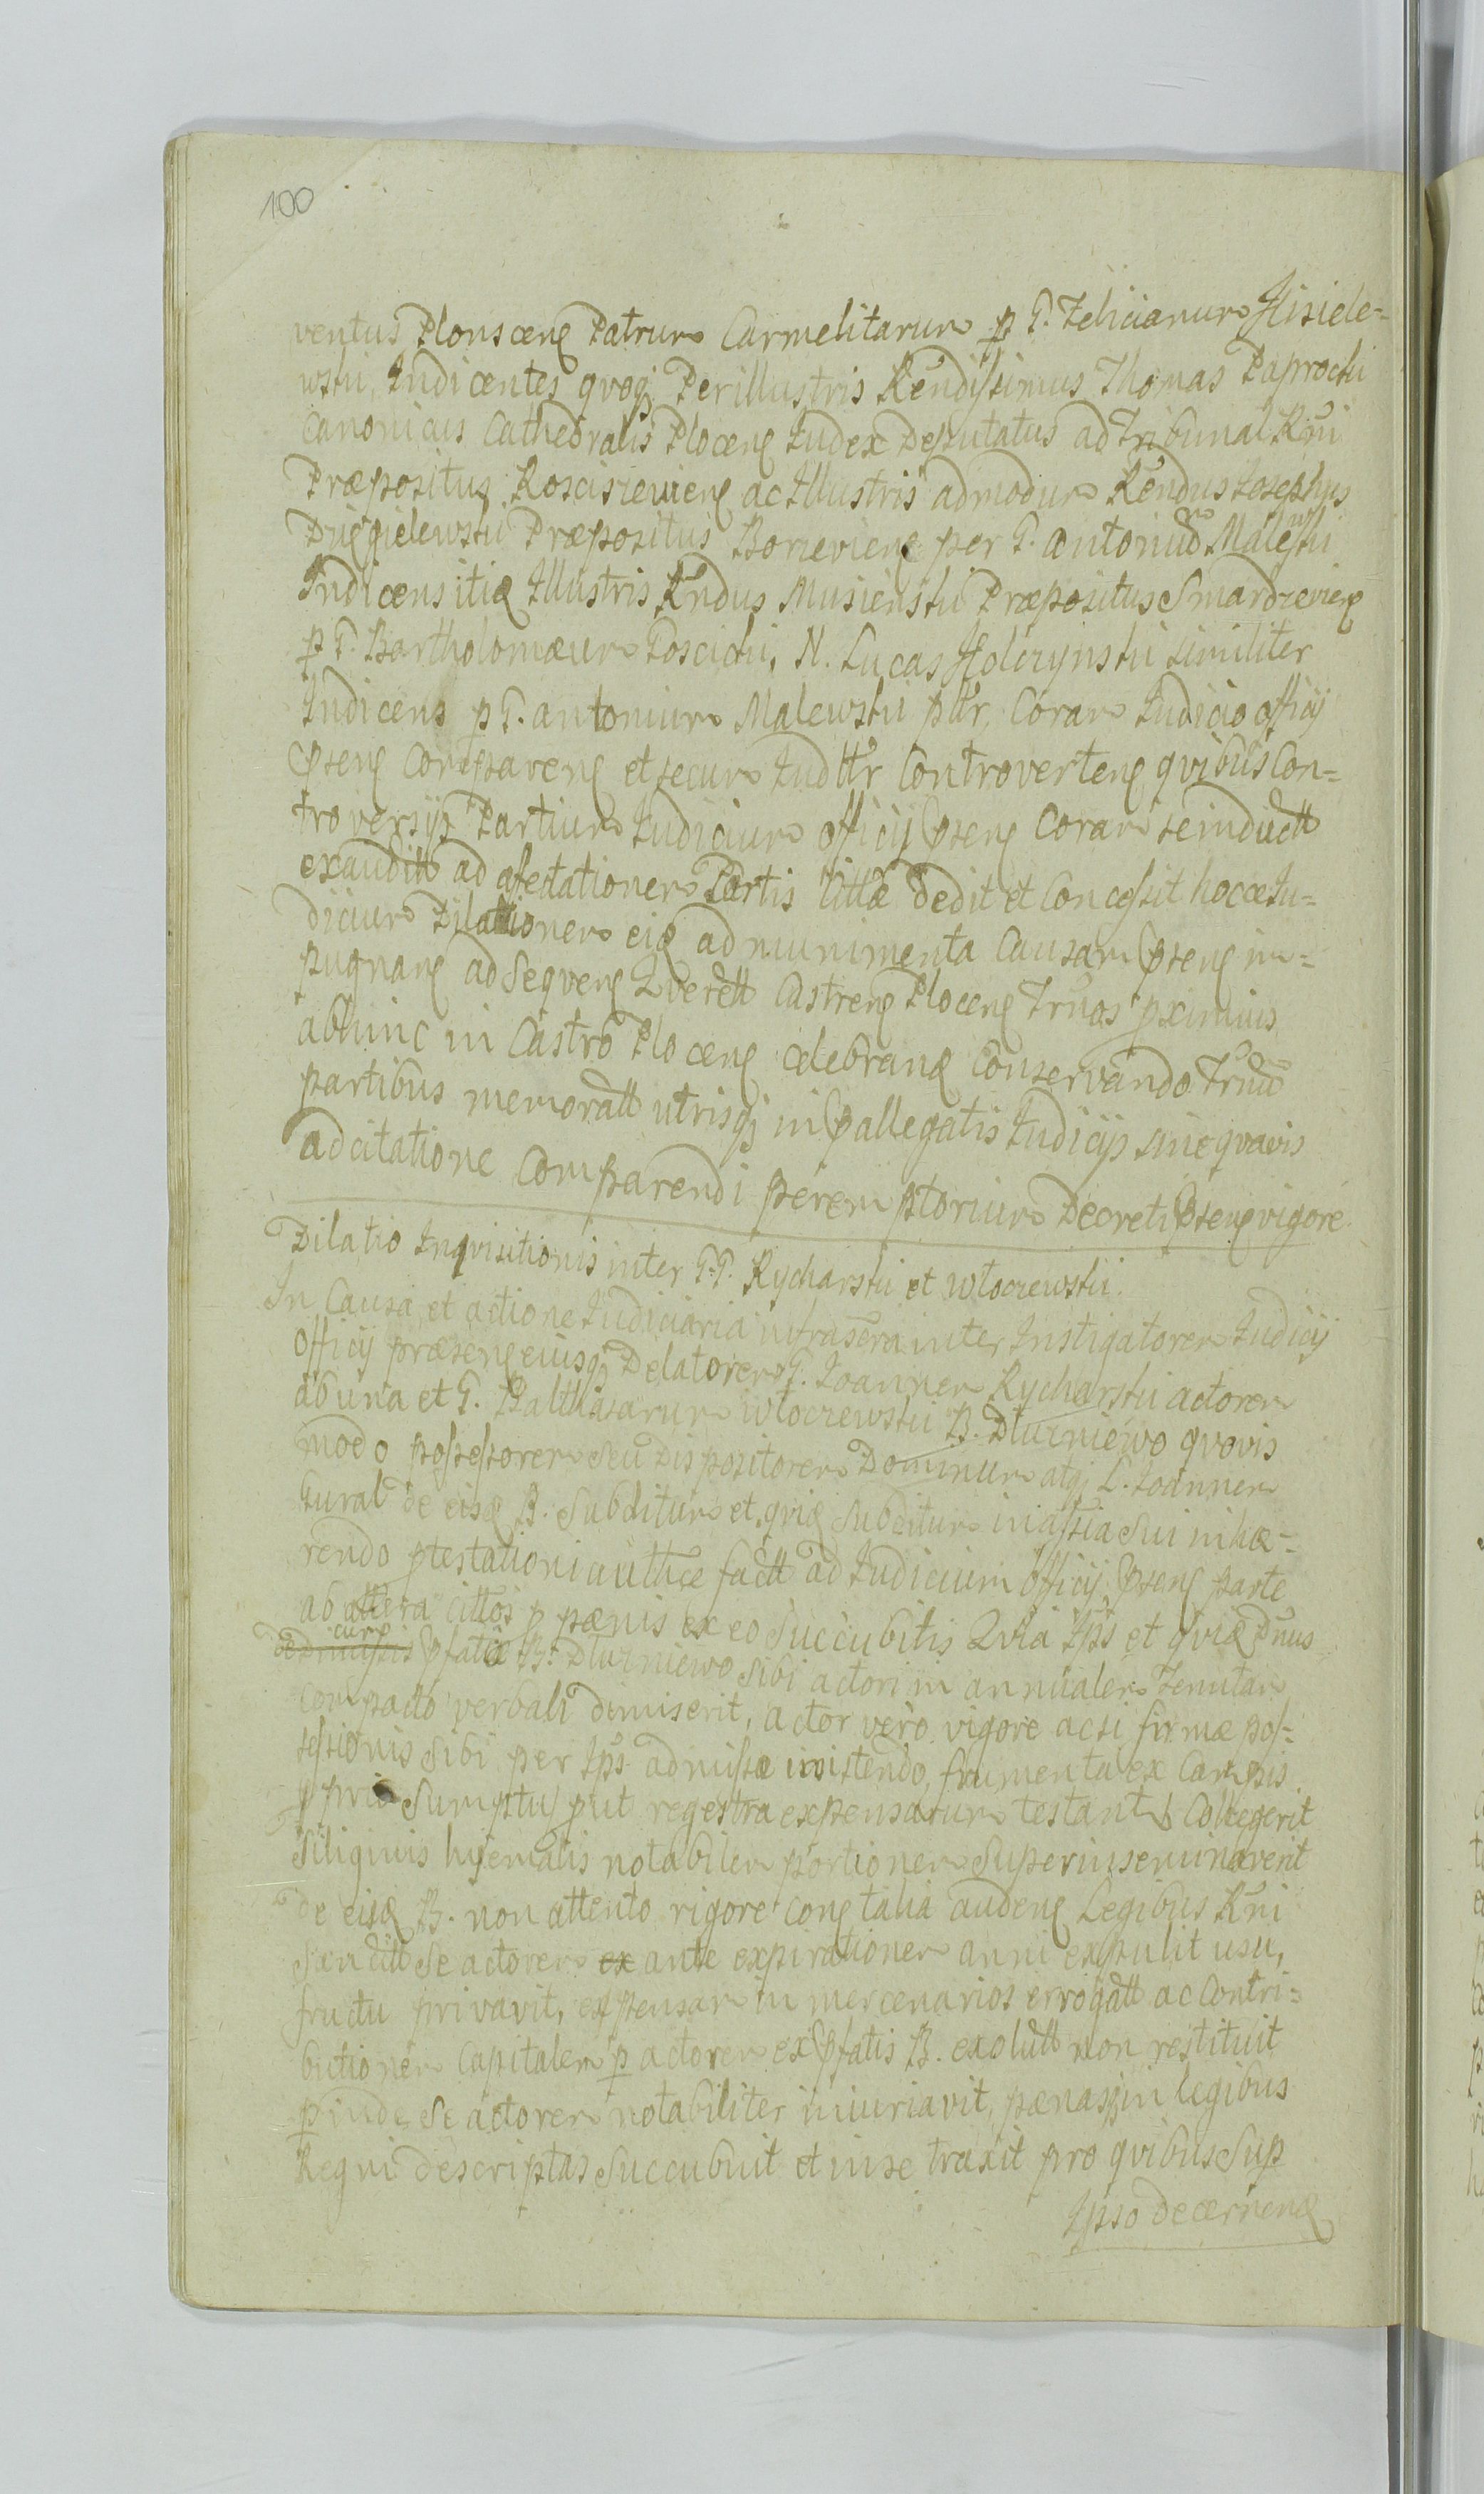 100
ventus Plonscens Patrum Carmelitarum p G. Felicianum Kisiele-
wski, Indicentes qvoq Perillustris Rendissimus Thomas Paprocki
Canonicus Cathedralis Plocens Judex Deputatus ad Tribunal Rni
Præpositus Roscisieviens ac Illustris admodum Rendus Josephus
Dziegielewski Præpositus Borzeviens per G. Antoniu Malewski
Indicens itiq Illustris Rndus Musienski Præpositus Smardzeviens
p G. Bartholomæum Goscicki, N. Lucas Holczynski similiter
Indicens p G. Antonium Malewski pltr, Coram Judicio officij
Psens Comparens et secum Judttr Controvertens, qvibus Con-
troversijs Partium Judicium officij Psens Coram se inductt
exauditt ad affectationem Partis Cittæ dedit et Concessit hocce Ju-
dicium Dilationem eiq ad munimenta Causam Psens im-
pugnans ad Seqvens Qverett Castrens Plocens Trnos pximius
abhinc in Castro Plocens celebranq Conservando Trnu
partibus memoratt utrisq in Pallegatis Judicijs sine qvavis
adcitatione Comparendi peremptorium Decreti Psens vigore.
Dilatio Inqvisitionis inter G.G. Rycharski et Wloczewskii.
In Causa et actione Judiciaria infrascra inter Instigatorem Judicij
Officij præsens eiusq Delatorem G. Joannem Rycharski actorem
ab una et G. Balthasarum Wloczewski B. Dluzniewo qvovis
modo possessorem seu Dispositorem Dominum atq L. Joannem
Gural de eisq B. Subditum et qviq Subditum in assia Sui inhæ-
rendo ptestationi autthce factt ad Judicium Officij Psens parte
ab altera cittos p pænis ex eo Succubitis Qvia Ips et qviq Dnus
cum
Pfatis B. Dluzniewo sibi actori in annualem Tenutam
Compacto verbali dimiserit, actor vero vigore acsi firmæ pos-
sessionis sibi per Ips admissæ insistendo, frumenta ex Campis
pprio Sumptu put regestra expensarum testant Collegerit
Siliginis hyemalis notabilem portionem Superinseminaverit
de eisq B. non attento rigore Cons talia audens Legibus Rni
Sancitt Se actorem ex ante expirationem anni expulit usu,
fructu privavit, expensam in mercenarios errogatt ac Contri-
butionem Capitalem p actorem ex Pfatis B. exolutt non restituit
p inde Se actorem notabiliter iniuriavit, pænasq in legibus
Regni descriptas Succubuit et in se traxit pro qvibus Sup
Ipso decernenq